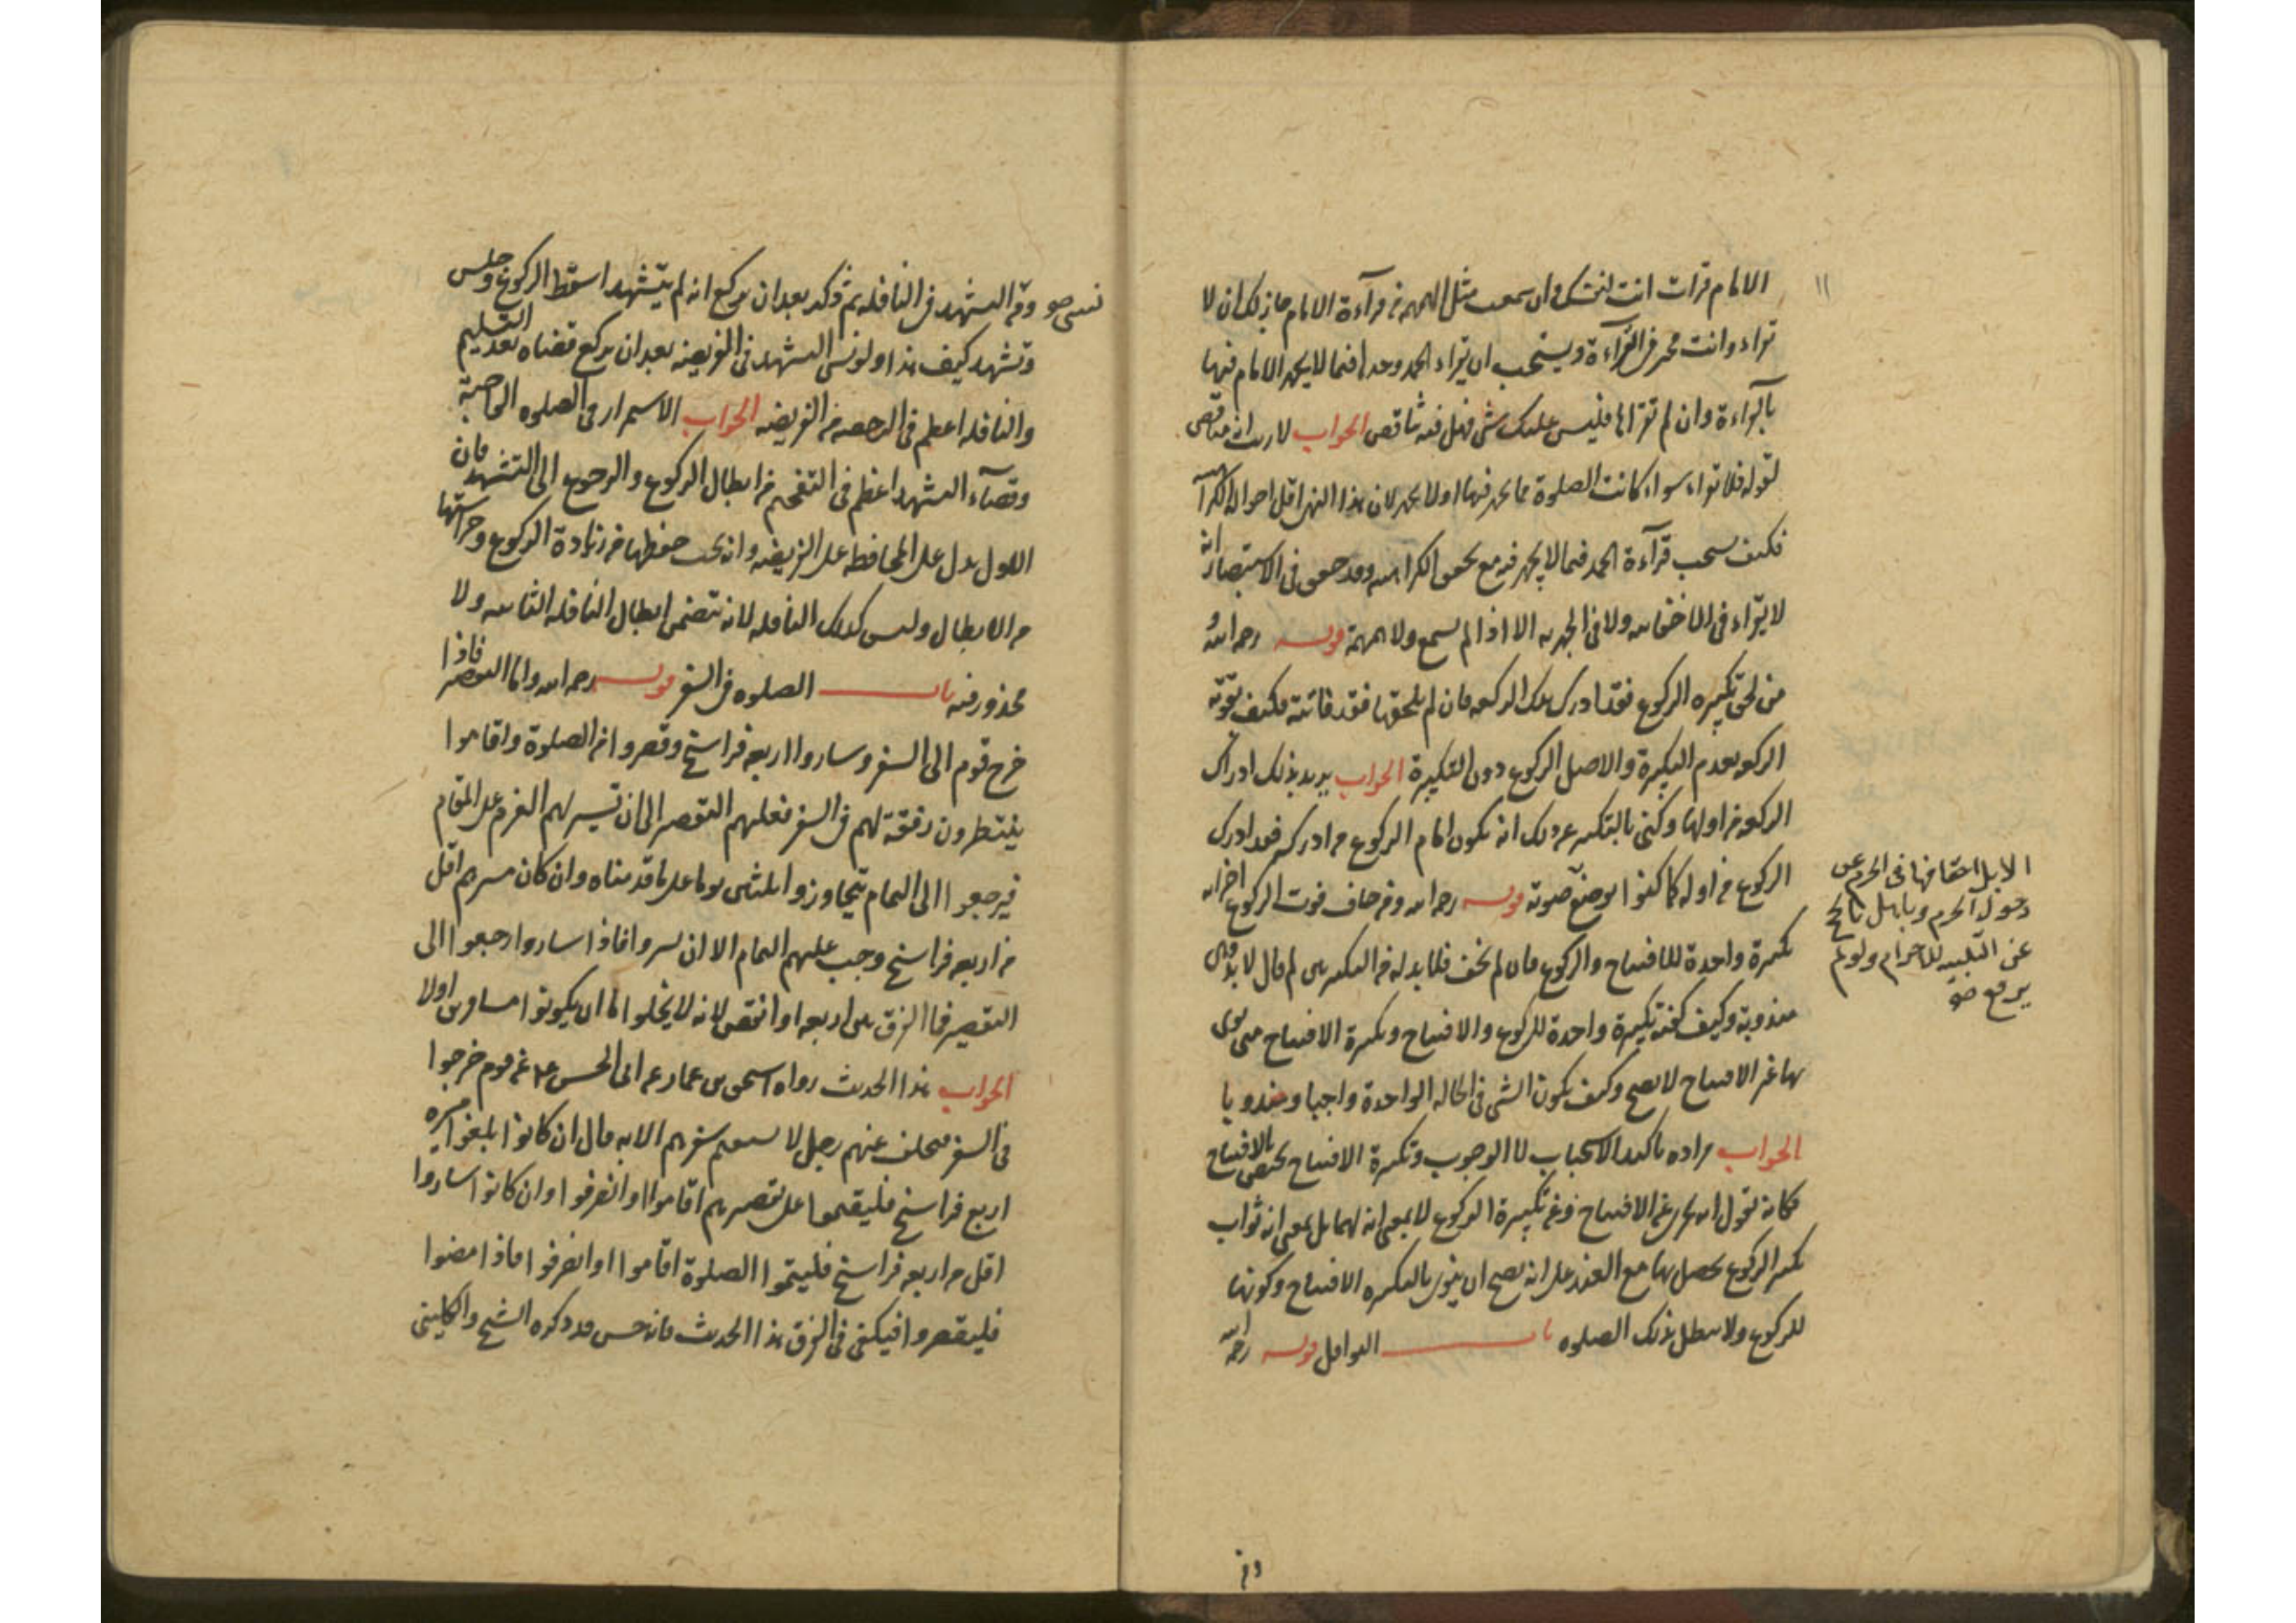 ١١
الامام قرات انت لنفسك وان سمعت مثل الهمهمة من قرآءة الامام جاز لك ان لا
تقراء وانت مخير فى القرآءة ويستحب ان يقراء الحمد وحدها فيما لا يجهر الامام فيها
بالقراءة وان لم تقراها فليس عليك شى فهل فيه تناقض الجواب لا ريب انه مناقض
لقوله فلا تقراء سواء كانت الصلوة مما يجهر فيها اولا يجهر لان هذا النهى اقل احواله الكراهية
فكيف يستحب قرآءة الحمد فيما لا يجهر فيه مع تحقق الكراهيه وقد حقق فى الاستبصار انه
لا يقراء فى الاخفاتيه ولا فى الجهريه الا اذا لم يسمع ولا همهمة قوله رحمه الله
من لحق تكبيره الركوع فقد ادرك تلك الركعه فان لم يلحقها فقد فاتته فكيف تفوته
الركعه بعدم التكبيرة والاصل الركوع دون التكبيرة الجواب يريد بذلك ادراك
الركعه من اولها وكنى بالتكبير عن ذلك انه يكون امام الركوع من ادركه فقد ادرك
الركوع من اوله كما كنوا بوضع صوته قوله رحمه الله ومن خاف فوت الركوع اجزاه
تكبيرة واحدة للافتتاح والركوع فان لم يخف فلا بد له من التكبيرتين لم قال لا بد وهى
مندوبة وكيف كفته تكبيرة واحدة للركوع والافتتاح وتكبيرة الافتتاح متى نوى
بها غير الافتتاح لا تصح وكيف يكون الشى فى الحاله الواحدة واجبا ومندوبا
الجواب مراده تاكيد الاستحباب لا الوجوب وتكبيرة الافتتاح تختص بالافتتاح
فكانه يقول انه يجزى عن الافتتاح وعن تكبيرة الركوع لا بمعنى انه لهما بل بمعنى انه ثواب
تكبير الركوع يحصل بها مع العذر على انه يصح ان ينوى بالتكبيره الافتتاح وكونها
للركوع ولا يبطل بذلك الصلوه باب النوافل قوله رحمه الله
الابل احقافها فى الحرم عن
دخول الحرم وباهل تاخ
عن التلبيه للاحرام ولو لم
يرفع صو
ومن
نسى صو وقه التشهد فى النافله ثم ذكر بعد ان يركع انه لم يتشهد اسقط الركوع وجلس
وتشهد كيف هذا ولو نسى التشهد فى الفريضه بعد ان يركع قضاه بعد التسليم
والنافله اعظم فى الرخصه من الفريضه الجواب الاستمرار فى الصلوه الواجبة
وقضآء التشهد اعظم فى التفخيم من ابطال الركوع والرجوع الى التشهد فان
الاول يدل على المحافظه على الفريضه وانه يجب حفظها من زيادة الركوع وحراستها
من الابطال وليس كذلك النافله لانه تتضمن ابطال النافله الثانيه ولا
محذور فيه باب الصلوه فى السفر قوله رحمه الله واما التقصير فاذا
خرج قوم الى السفر وساروا اربعه فراسخ وقصروا من الصلوة واقاموا
ينتظرون رفقة لهم فى السفر فعليهم التقصير الى ان تيسر لهم العزم على المقام
فيرجعوا الى التمام يتجاوزوا ثلثين يوما على ما قدمناه وان كان مسيرهم اقل
من اربعه فراسخ وجب عليهم التمام الا ان يسيروا فاذا ساروا رجعوا الى
التقصير فما الفرق بين اربعه او انقص لانه لا يخلوا اما ان يكونوا مسافرين اولا
الجواب هذا الحديث رواه اسحق بن عمار عن ابى الحسن ع عن قوم خرجوا
فى السفر فتخلف عنهم رجل لا يستقيم سفرهم الا به قال ان كانوا بلغوا مسيره
اربع فراسخ فليقيموا على تقصيرهم اقاموا او انصرفوا وان كانوا ساروا
اقل من اربعه فراسخ فليتموا الصلوة اقاموا او انصرفوا فاذا مضوا
فليقصروا فيكفى فى الفرق هذا الحديث فانه حسن قد ذكره الشيخ والكلينى